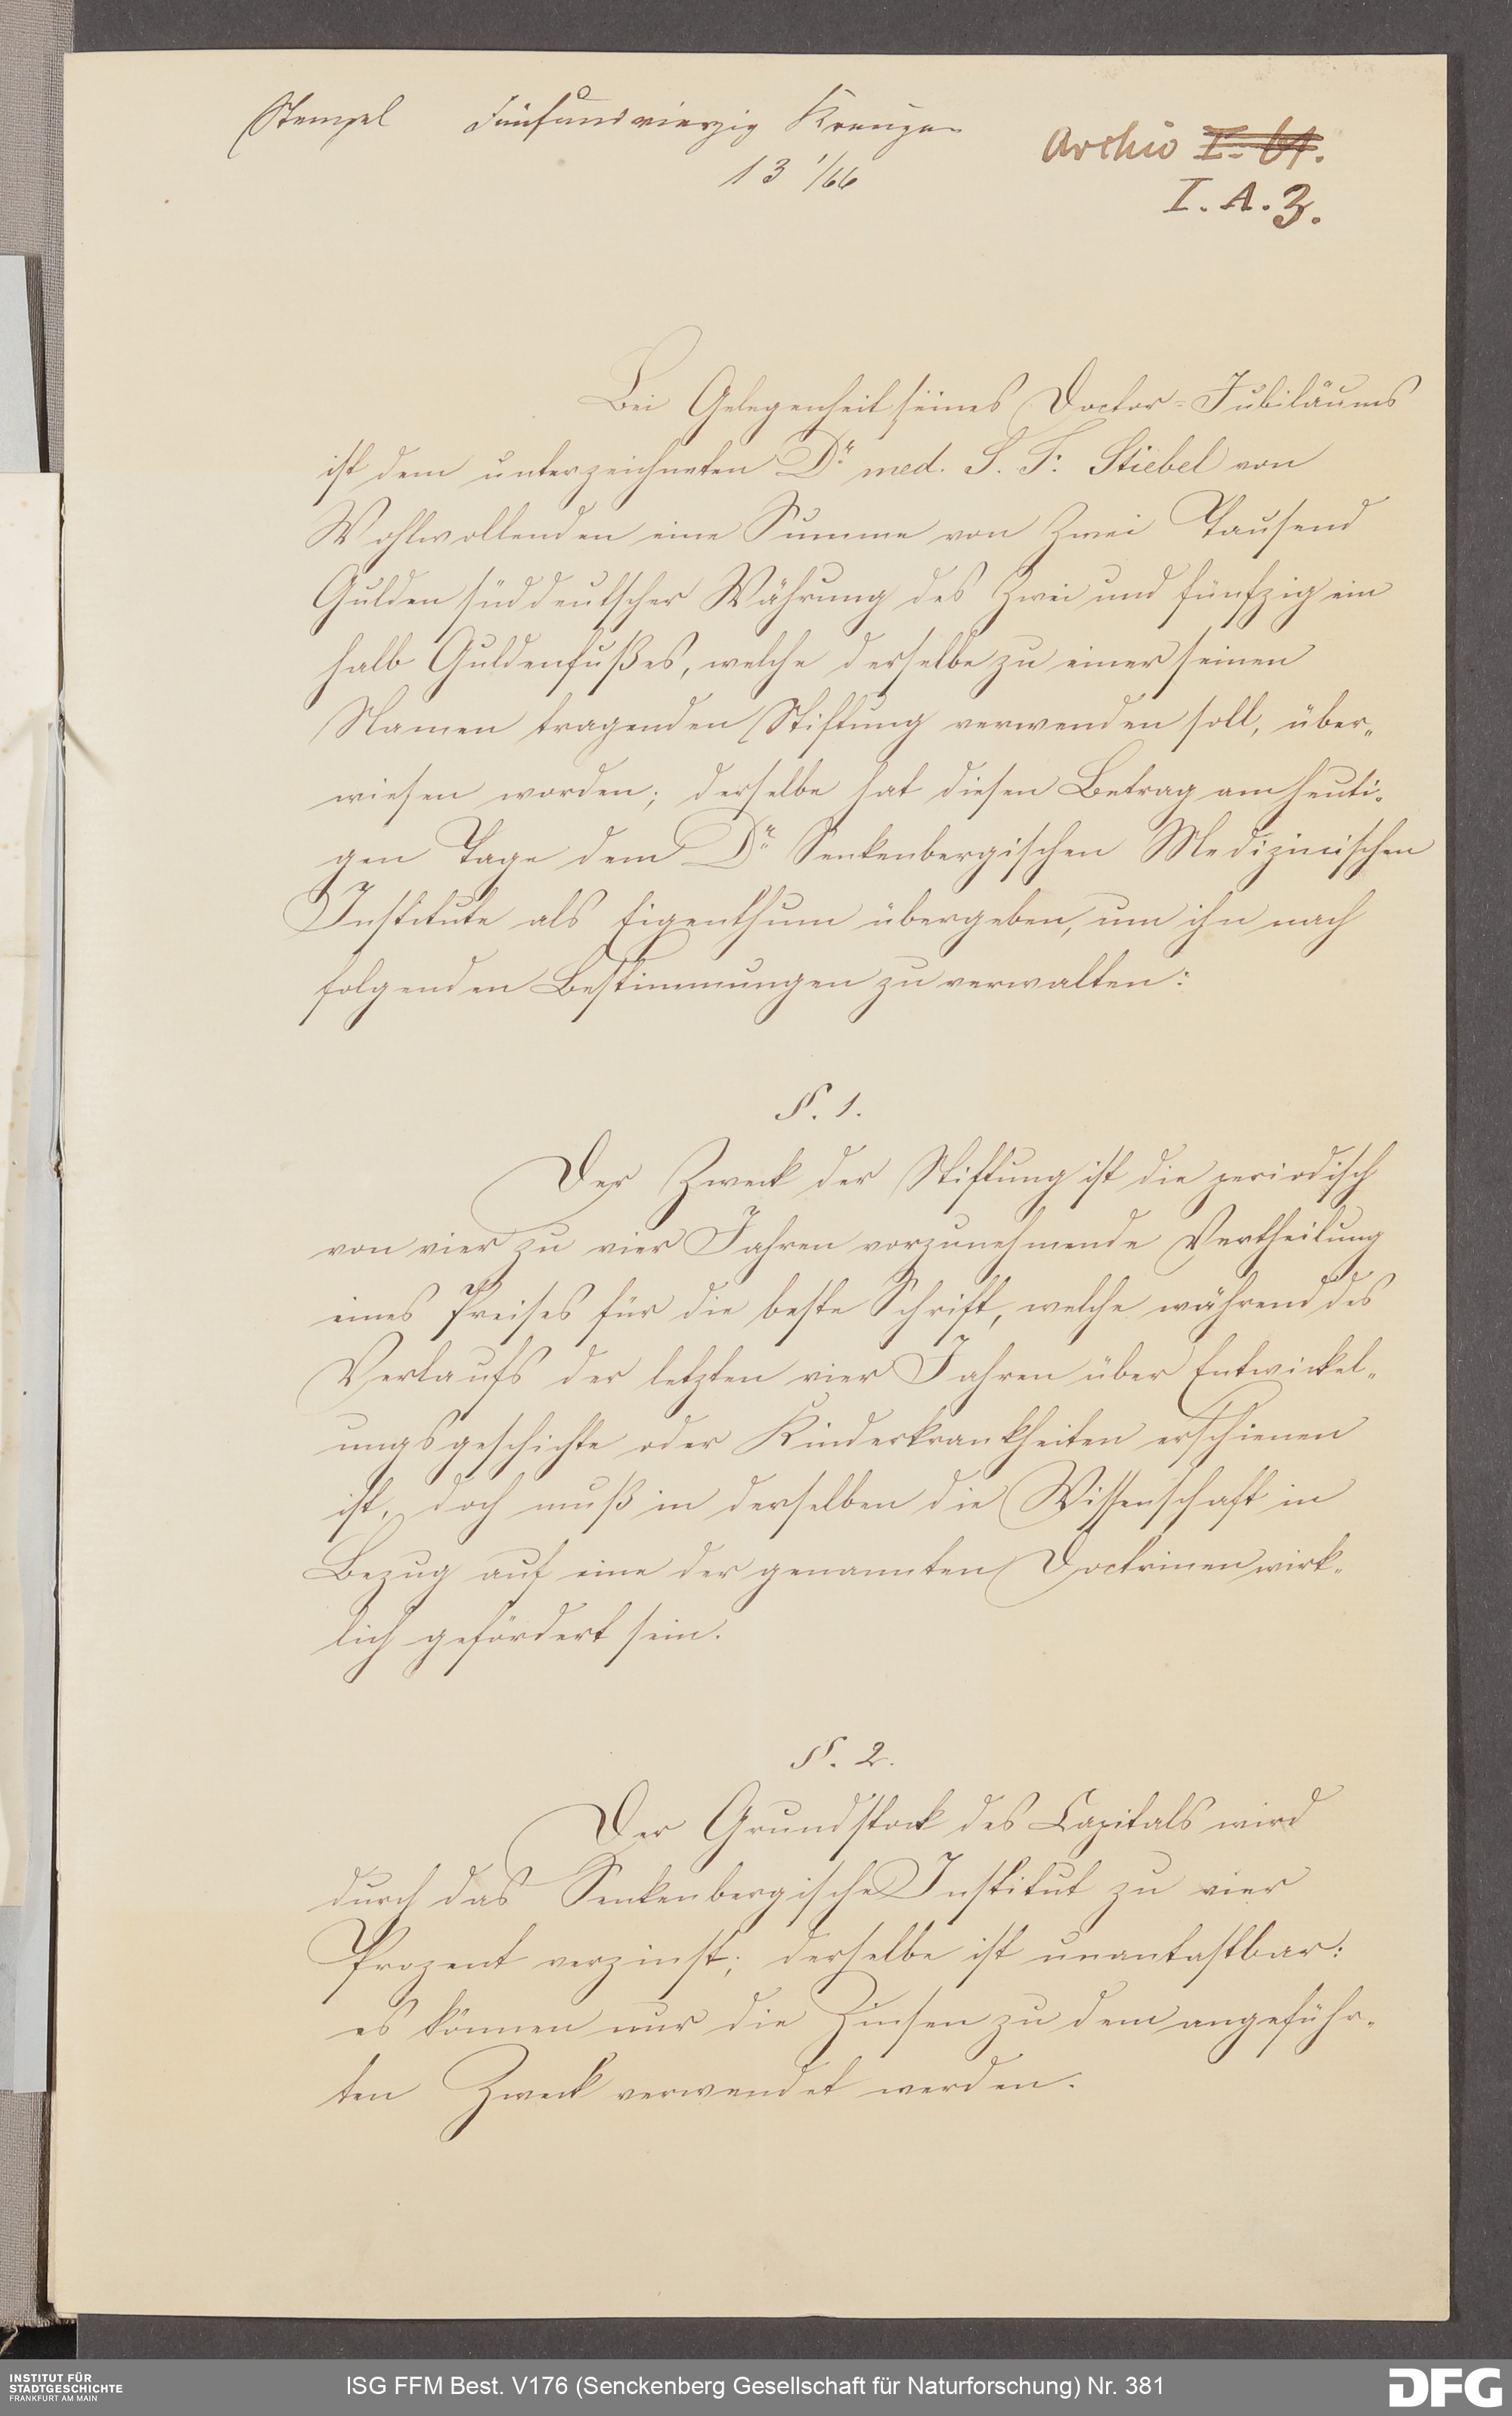 Stempel Fünfundvierzig Kreuzer
13 1/66
Archiv I. 61.
I. A. 3.
Bei Gelegenheit seines Doctor-Jubiläums
ist dem unterzeichneten Dr. med. S. F. Stiebel von
Wohlwollenden eine Summe von Zwei Tausend
Gulden süddeutscher Währung des Zwei und fünfzig ein
halb Guldenfußes, welche derselbe zu einer seinen
Namen tragenden Stiftung verwenden soll, über-
wiesen worden; derselbe hat diesen Betrag am heuti-
gen Tage dem Dr. Senkenbergischen Medizinischen
Institute als Eigenthum übergeben, um ihn nach
folgenden Bestimmungen zu verwalten:
§. 1.
Der Zweck der Stiftung ist die periodisch
von vier zu vier Jahren vorzunehmende Vertheilung
eines Preises für die beste Schrift, welche während des
Verlaufs der letzten vier Jahren über Entwickel-
ungsgeschichte oder Kinderkrankheiten erschienen
ist, doch muß in derselben die Wissenschaft in
Bezug auf eine der genannten Doctrinen wirk-
lich gefördert sein.
§. 2.
Der Grundstock des Capitals wird
durch das Senkenbergische Institut zu vier
Prozent verzinst; derselbe ist unantastbar:
es können nur die Zinsen zu dem angeführ-
ten Zweck verwendet werden.
INSTITUT FÜR
STADTGESCHICHTE
FRANKFURT AM MAIN
ISG FFM Best. V176 (Senckenberg Gesellschaft für Naturforschung) Nr. 381
DFG